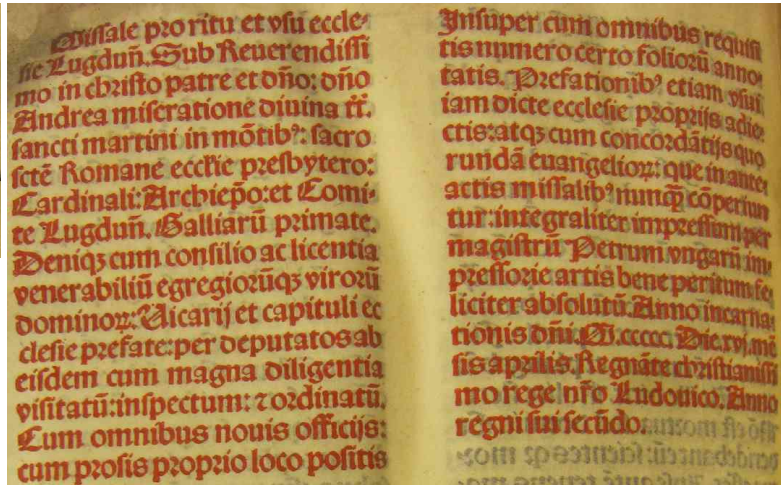 Missale pro ritu et vsu eccle-
sie Lugduñ. Sub Reuerendissi
mo in christo patre et dño: dño
Andrea miseratione diuina tť.
sancti martini in mõtibꝰ: sacro
sctẽ Romane ecc̃ie presbytero:
Cardinali: Archiep̃o: et Comi-
te Lugduñ. Galliarũ primate.
Deniqꝫ cum consilio ac licentia
venerabiliũ egregiorũqꝫ virorũ
dominoꝝ: Uicarij et capituli ec
clesie prefate: per deputatos ab
eisdem cum magna diligentia
visitatũ: inspectum: ⁊ ordinatũ.
Cum omnibus nouis officijs:
cum prosis proprio loco positis
Insuper cum omnibus requisi
tis numero certo foliorũ anno-
tatis. Prefationibꝰ etiam vsui
iam dicte ecclesie proprijs adie-
ctis: atqꝫ cum concordãtijs quo
rundã euangelioꝝ: que in ante
actis missalibꝰ nunq̃ꝫ cõperiun
tur: integraliter impressum per
magistrũ Petrum vngarũ im-
pressorie artis bene peritum fe
liciter absolutũ. Anno incarna-
tionis dñi. M. ccccc. Die. xvj. mẽ
sis aprilis. Regnãte christianissi
mo rege nr̃o Ludouico. Anno
regni sui secũdo.